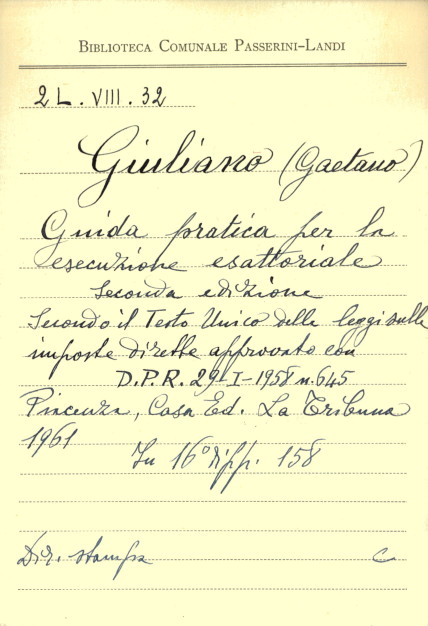 BIBLIOTECA COMUNALE PASSERINI-LANDI
2 L. VIII. 32
Giuliano (Gaetano)
Guida pratica per la
esecuzione esattoriale
Seconda edizione
Secondo il Testo Unico delle leggi sulle
imposte dirette approvato con
D.P.R. 29-I-1958 n. 645
Piacenza, Casa Ed. La Tribuna
1961
In 16° di pp. 158
Dir. stampa C